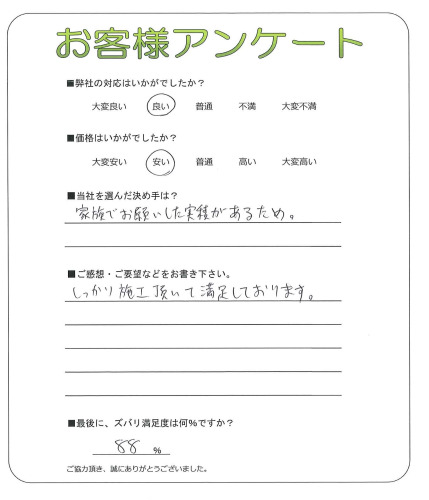 お客様アンケート
■弊社の対応はいかがでしたか？
大変良い 良い 普通 不満 大変不満
■価格はいかがでしたか？
大変安い 安い 普通 高い 大変高い
■当社を選んだ決め手は？
家族でお願いした実績があるため。
■ご感想・ご要望などをお書き下さい。
しっかり施工頂いて満足しております。
■最後に、ズバリ満足度は何%ですか？
88 %
ご協力頂き、誠にありがとうございました。